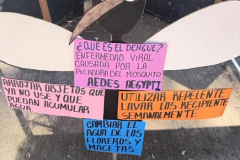 ¿QUE ES EL DENGUE?
ENFERMEDAD VIRAL
CAUSADA POR LA
PICADURA DEL MOSQUITO
AEDES AEGYPTI
ARROJAR OBJETOS QUE
YA NO USE Y QUE
PUEDAN ACUMULAR
AGUA
UTILIZAR REPELENTE
LAVAR LOS RECIPIENTE
SEMANALMENTE
CAMBIAR EL
AGUA DE LOS
FLOREROS Y
MACETAS